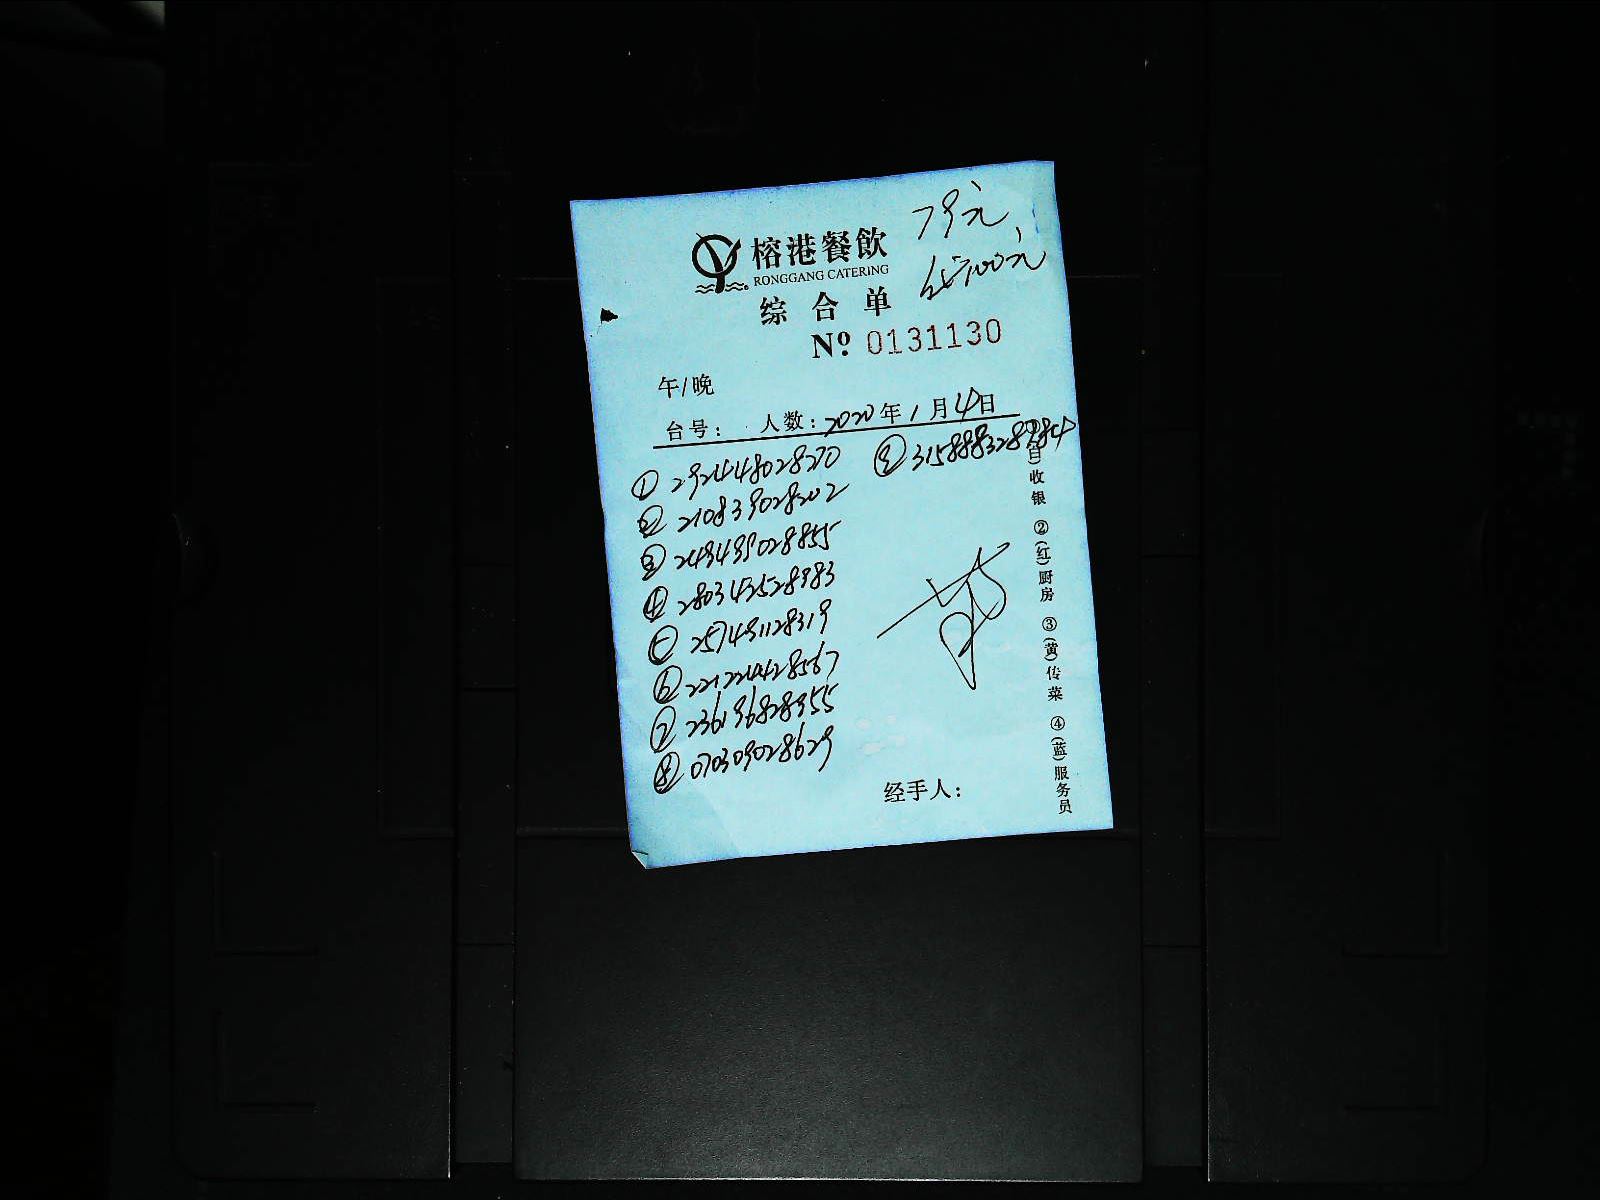 79元
榕港餐飲
RONGGANG CATERING
100元
综合单
Nº 0131130
午/晚
台号: 人数: 2020年1月4日
① 292448028270
② 210839028202
③ 249499028855
④ 280342528983
⑤ 257491128319
⑥ 221224428567
⑦ 236196828955
⑧ 070309028629
⑨
收银 ②(红)厨房 ③(黄)传菜 ④(蓝)服务员
经手人: